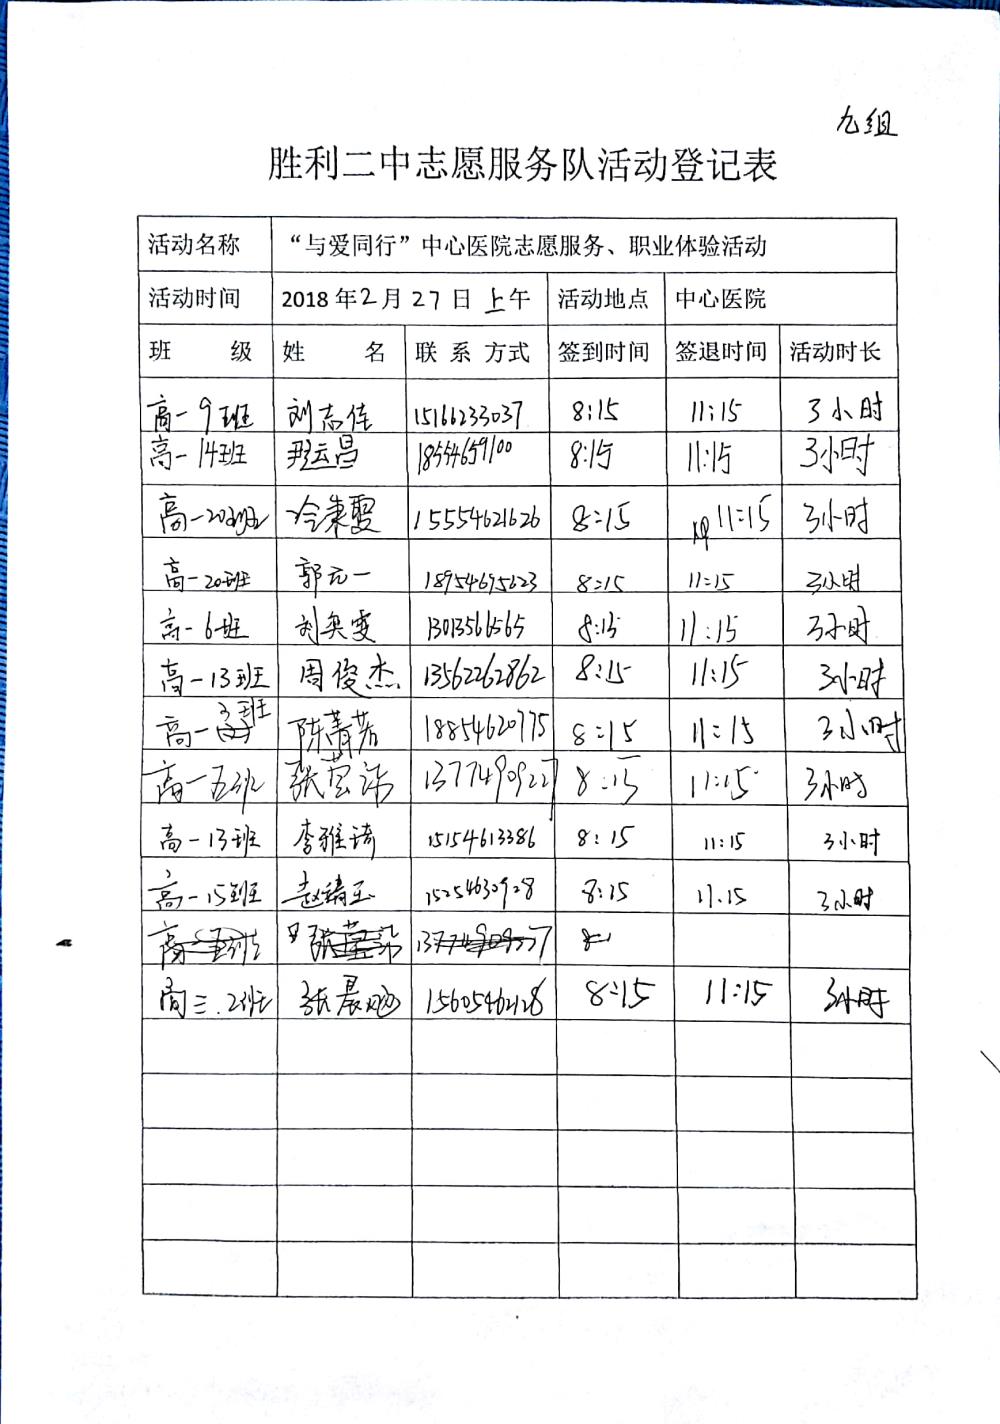 九组
胜利二中志愿服务队活动登记表
活动名称 “与爱同行”中心医院志愿服务、职业体验活动
活动时间 2018年2月27日上午 活动地点 中心医院
班 级 姓 名 联系方式 签到时间 签退时间 活动时长
高一9班 刘志佳 15166233037 8:15 11:15 3小时
高一14班 尹云昌 18554659100 8:15 11:15 3小时
高一20班 冷秉雯 15554621626 8:15 11:15 3小时
高一20班 郭元一 18954695623 8:15 11:15 3小时
高一6班 刘奕雯 13013566565 8:15 11:15 3小时
高一13班 周俊杰 13562262862 8:15 11:15 3小时
高一3班 陈菁芳 18854620775 8:15 11:15 3小时
高一五班 张 13774909227 8:15 11:15 3小时
高一13班 李雅琦 15154613386 8:15 11:15 3小时
高一15班 赵 15254630928 8:15 11.15 3小时
高三.2班 张晨 15605462128 8:15 11:15 3小时